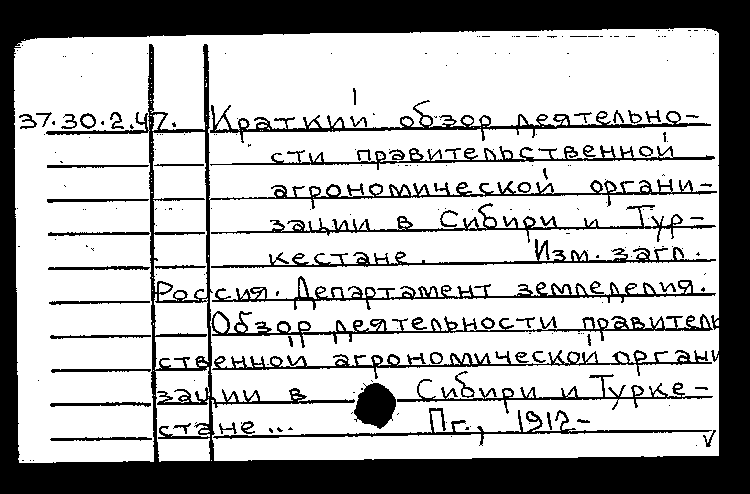 37.30.2.47. Краткий обзор деятельно-
сти правительственной
агрономической органи-
зации в Сибири и Тур-
кестане. Изм. загл.
Россия. Департамент земледелия.
Обзор деятельности правитель
ственной агрономической органи
зации в Сибири и Турке-
стане... Пг., 1912-
v